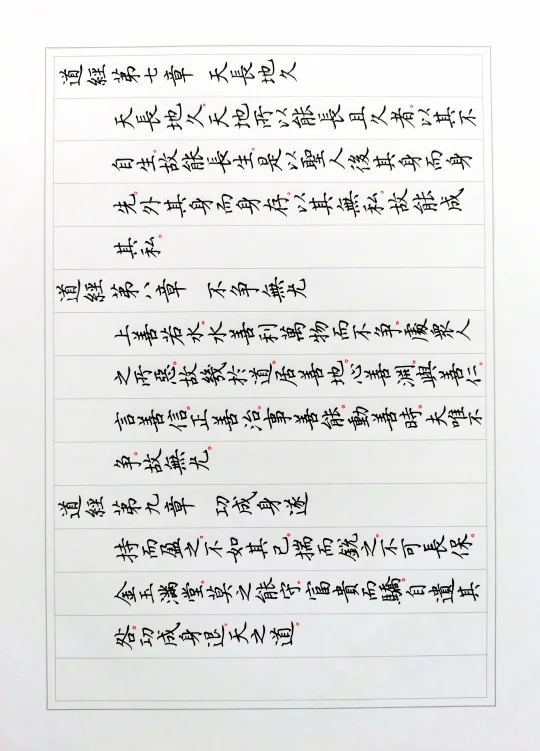 道經第七章 天長地久
天長地久。天地所以能長且久者。以其不
自生。故能長生。是以聖人後其身而身
先。外其身而身存。以其無私。故能成
其私。
道經第八章 不争無尤
上善若水。水善利萬物而不争。處衆人
之所惡。故幾於道。居善地。心善淵。與善仁。
言善信。正善治。事善能。動善時。夫唯不
争。故無尤。
道經第九章 功成身遂
持而盈之。不如其已。揣而銳之。不可長保。
金玉滿堂。莫之能守。富貴而驕。自遺其
咎。功成身退。天之道。